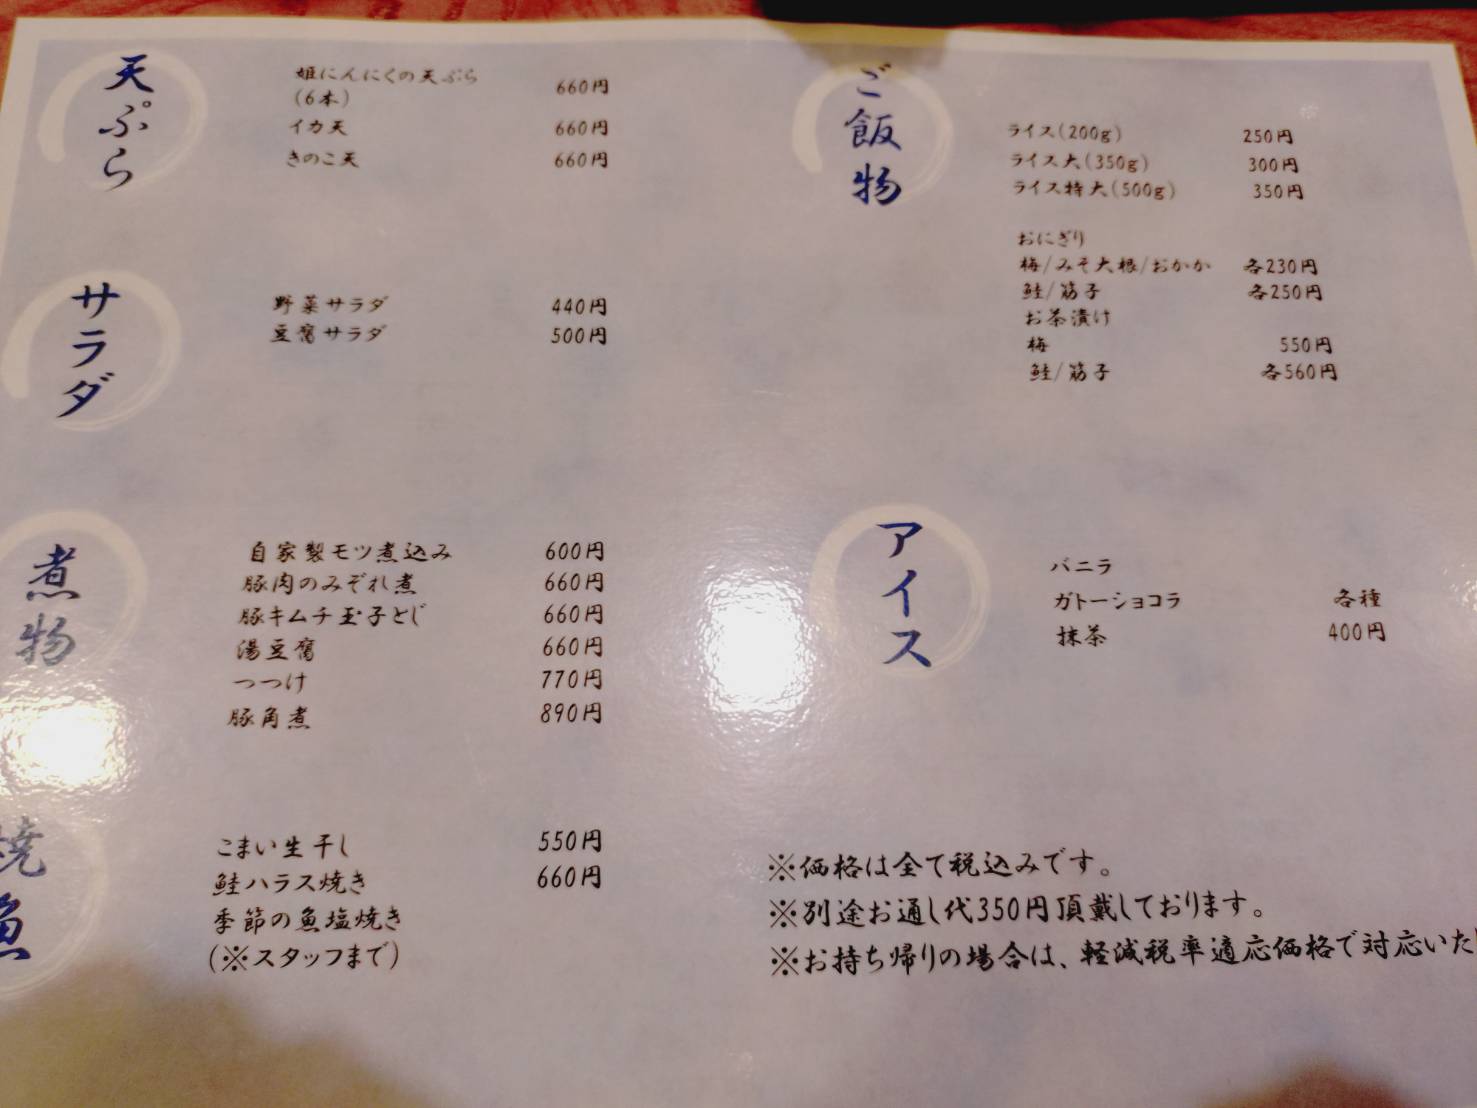 天ぷら
姫にんにくの天ぷら 660円
(6本)
イカ天 660円
きのこ天 660円
サラダ
野菜サラダ 440円
豆腐サラダ 500円
煮物
自家製モツ煮込み 600円
豚肉のみぞれ煮 660円
豚キムチ玉子とじ 660円
湯豆腐 660円
つつけ 770円
豚角煮 890円
焼魚
こまい生干し 550円
鮭ハラス焼き 660円
季節の魚塩焼き
(※スタッフまで)
ご飯物
ライス(200g) 250円
ライス大(350g) 300円
ライス特大(500g) 350円
おにぎり
梅/みそ大根/おかか 各230円
鮭/筋子 各250円
お茶漬け
梅 550円
鮭/筋子 各560円
アイス
バニラ
ガトーショコラ 各種
抹茶 400円
※価格は全て税込みです。
※別途お通し代350円頂戴しております。
※お持ち帰りの場合は、軽減税率適応価格で対応いた